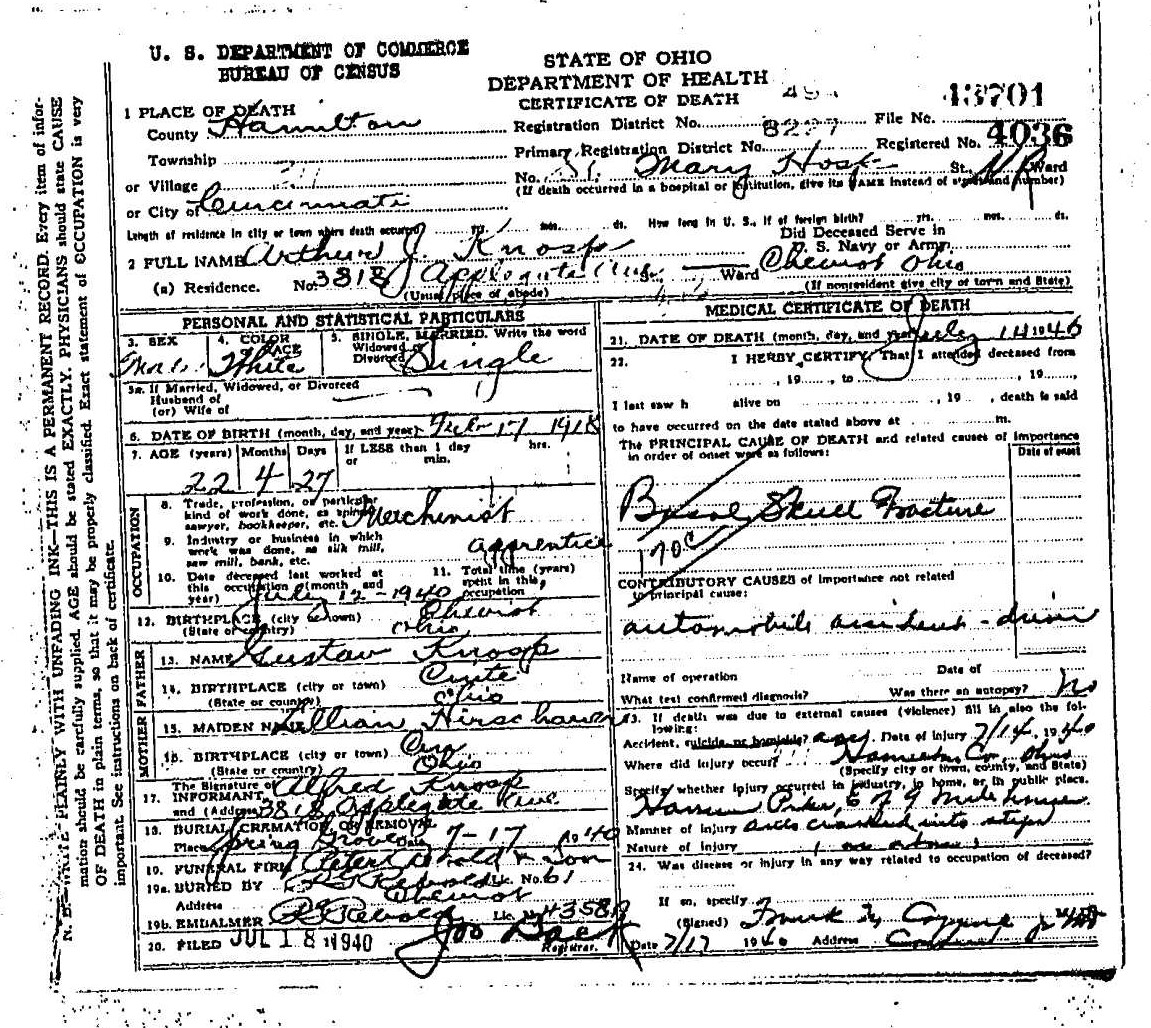 U. S. DEPARTMENT OF COMMERCE
BUREAU OF CENSUS
STATE OF OHIO
DEPARTMENT OF HEALTH
CERTIFICATE OF DEATH
1 PLACE OF DEATH
County Hamilton
Registration District No. 494 File No. 43701
Township
Primary Registration District No. 8227 Registered No. 4036
or Village
No. St. Mary Hosp St., NR Ward
(If death occurred in a hospital or institution, give its NAME instead of street and number)
or City of Cincinnati
Length of residence in city or town where death occurred yrs. mos. ds. How long in U. S., if of foreign birth? yrs. mos. ds.
2 FULL NAME Arthur J. Knosp
Did Deceased Serve in
U. S. Navy or Army
(a) Residence. No. 3818 Applegate Ave St. Ward Cheviot Ohio
(Usual place of abode) (If nonresident give city or town and State)
PERSONAL AND STATISTICAL PARTICULARS
3. SEX 4. COLOR RACE 5. SINGLE, MARRIED, Write the word
Widowed or
Divorced
Male White Single
5a. If Married, Widowed, or Divorced
Husband of
(or) Wife of
6. DATE OF BIRTH (month, day, and year) Feb 17 1918
7. AGE (years) Months Days If LESS than 1 day hrs.
or min.
22 4 27
OCCUPATION
8. Trade, profession, or particular
kind of work done, as spinner,
sawyer, bookkeeper, etc. Machinist
9. Industry or business in which
work was done, as silk mill,
saw mill, bank, etc. apprentice
10. Date deceased last worked at
this occupation (month and
year) July 12-1940
11. Total time (years)
spent in this
occupation
12. BIRTHPLACE (city or town) Cheviot
(State or country) Ohio
FATHER
13. NAME Gustav Knosp
14. BIRTHPLACE (city or town)
(State or country) Ohio
MOTHER
15. MAIDEN NAME Lillian
16. BIRTHPLACE (city or town) Cin
(State or country) Ohio
The Signature of Alfred Knosp
17. INFORMANT
and (Address) 3818 Applegate Ave
18. BURIAL CREMATION OR REMOVAL
Place Spring Grove Date 7-17 1940
19. FUNERAL FIRM
19a. BURIED BY Lic. No. 61
Address Cheviot
19b. EMBALMER Lic.
20. FILED JUL 18 1940
Registrar.
MEDICAL CERTIFICATE OF DEATH
21. DATE OF DEATH (month, day, and year) July 14 1940
22. I HERBY CERTIFY, That I attended deceased from
, 19 , to , 19 ,
I last saw h alive on , 19 , death is said
to have occurred on the date stated above at m.
The PRINCIPAL CAUSE OF DEATH and related causes of Importance
in order of onset were as follows: Date of onset
Basal Skull Fracture
170c
CONTRIBUTORY CAUSES of importance not related
to principal cause:
automobile accident - driver
Name of operation Date of
What test confirmed diagnosis? Was there an autopsy? No
23. If death was due to external causes (violence) fill in also the following:
Accident, suicide, or homicide? acc Date of injury 7/14, 1940
Where did injury occur? Hamilton Co. Ohio
(Specify city or town, county, and State)
Specify whether injury occurred in industry, in home, or in public place.
Harrison Pike,
Manner of Injury auto crashed into
Nature of Injury
24. Was disease or injury in any way related to occupation of deceased?
If so, specify
(Signed) Frank M. Coppock Jr MD
Date 7/17 1940 Address
N. B.—WRITE PLAINLY WITH UNFADING INK—THIS IS A PERMANENT RECORD. Every item of information should be carefully supplied. AGE should be stated EXACTLY. PHYSICIANS should state CAUSE OF DEATH in plain terms, so that it may be properly classified. Exact statement of OCCUPATION is very important. See instructions on back of certificate.